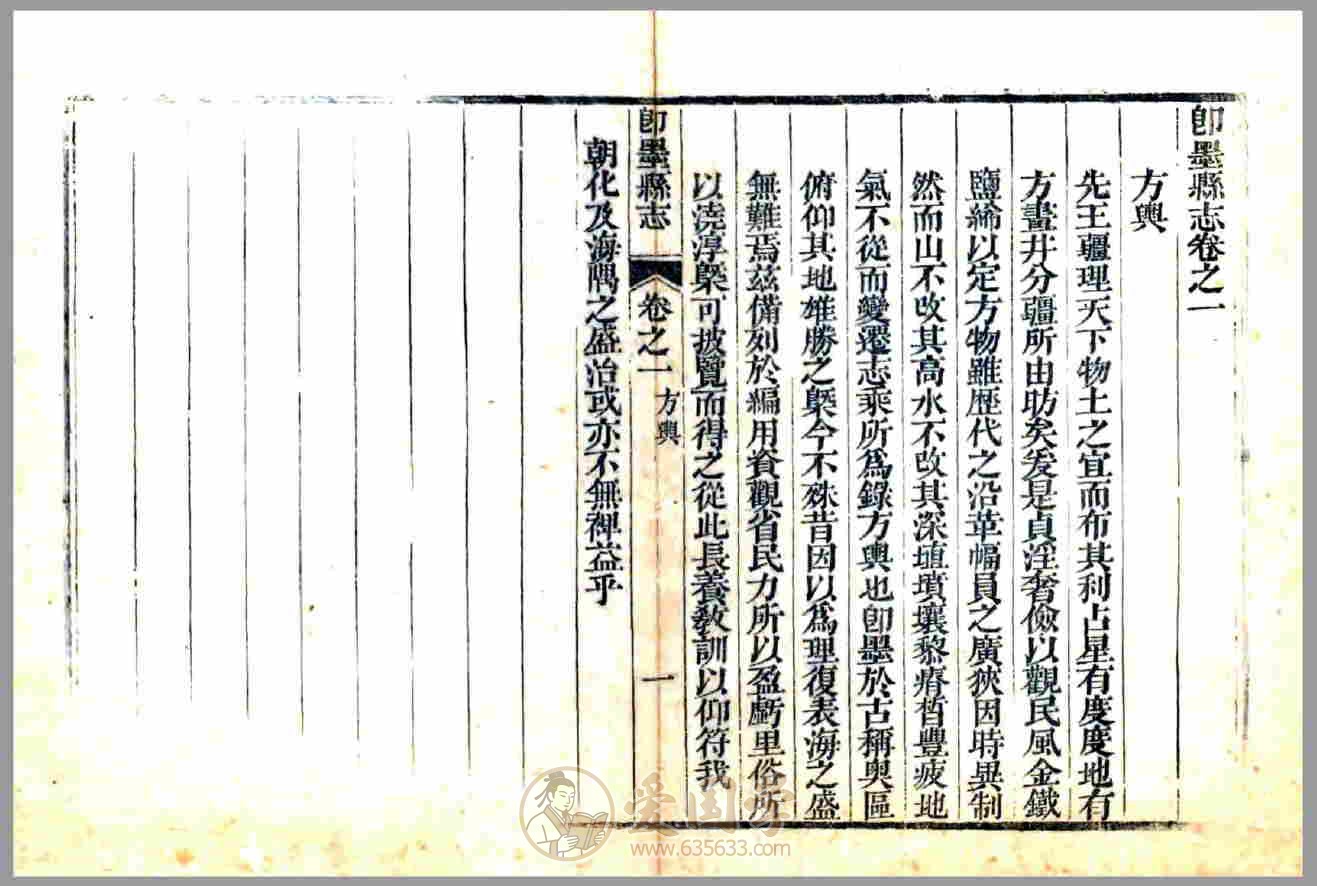 卽墨縣志卷之一
方輿
先王疆理天下物土之宜而布其利占星有度度地有
方畫井分疆所由昉矣爰是貞淫奢儉以觀民風金鐵
鹽絺以定方物雖歷代之沿革幅員之廣狹因時異制
然而山不改其高水不改其深埴墳壤黎瘠晳豐疲地
氣不從而變遷志乘所爲錄方輿也卽墨於古稱奧區
俯仰其地雄勝之槩今不殊昔因以爲理復表海之盛
無難焉茲備列於編用資觀省民力所以盈虧里俗所
以澆淳槩可披覽而得之從此長養敎訓以仰符我
朝化及海隅之盛治或亦不無裨益乎
卽墨縣志
卷之一
方輿
一
爱国学
www.635633.com